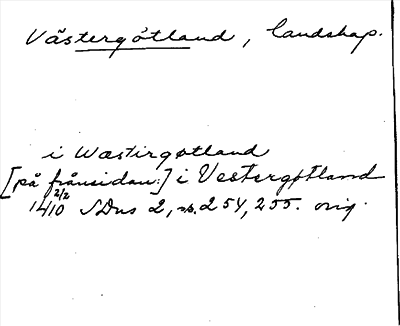 Västergötland, landskap.
i Wæstirgøtland
[på frånsidan:] i Vestergøtland
14 2/2 10 SDns 2, s. 254, 255. orig.